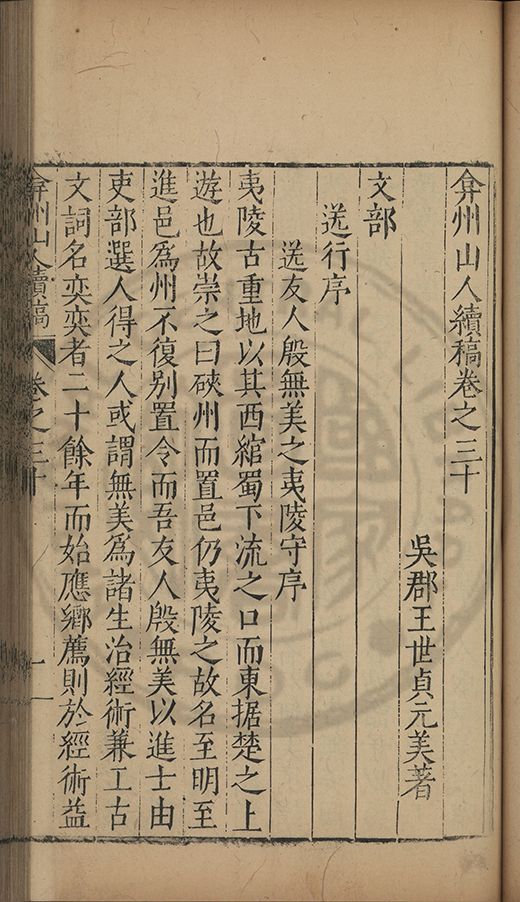 弇州山人續稿卷之三十
吳郡王世貞元美著
文部
送行序
送友人殷無美之夷陵守序
夷陵古重地以其西綰蜀下流之口而東據楚之上
遊也故崇之曰硤州而置邑仍夷陵之故名至明至
進邑爲州不復别置令而吾友人殷無美以進士由
吏部選人得之人或謂無美爲諸生治經術兼工古
文詞名奕奕者二十餘年而始應鄉薦則於經術益
弇州山人續稿
卷之三十
一